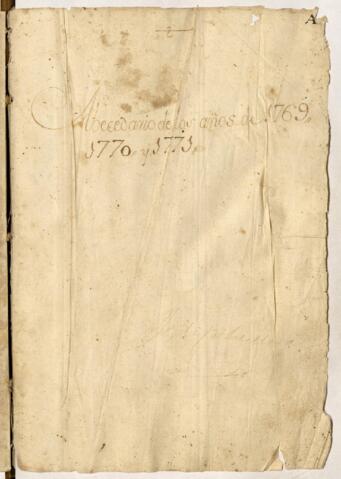 A
Abecedario de los años de 1769,
1770, y 1771,